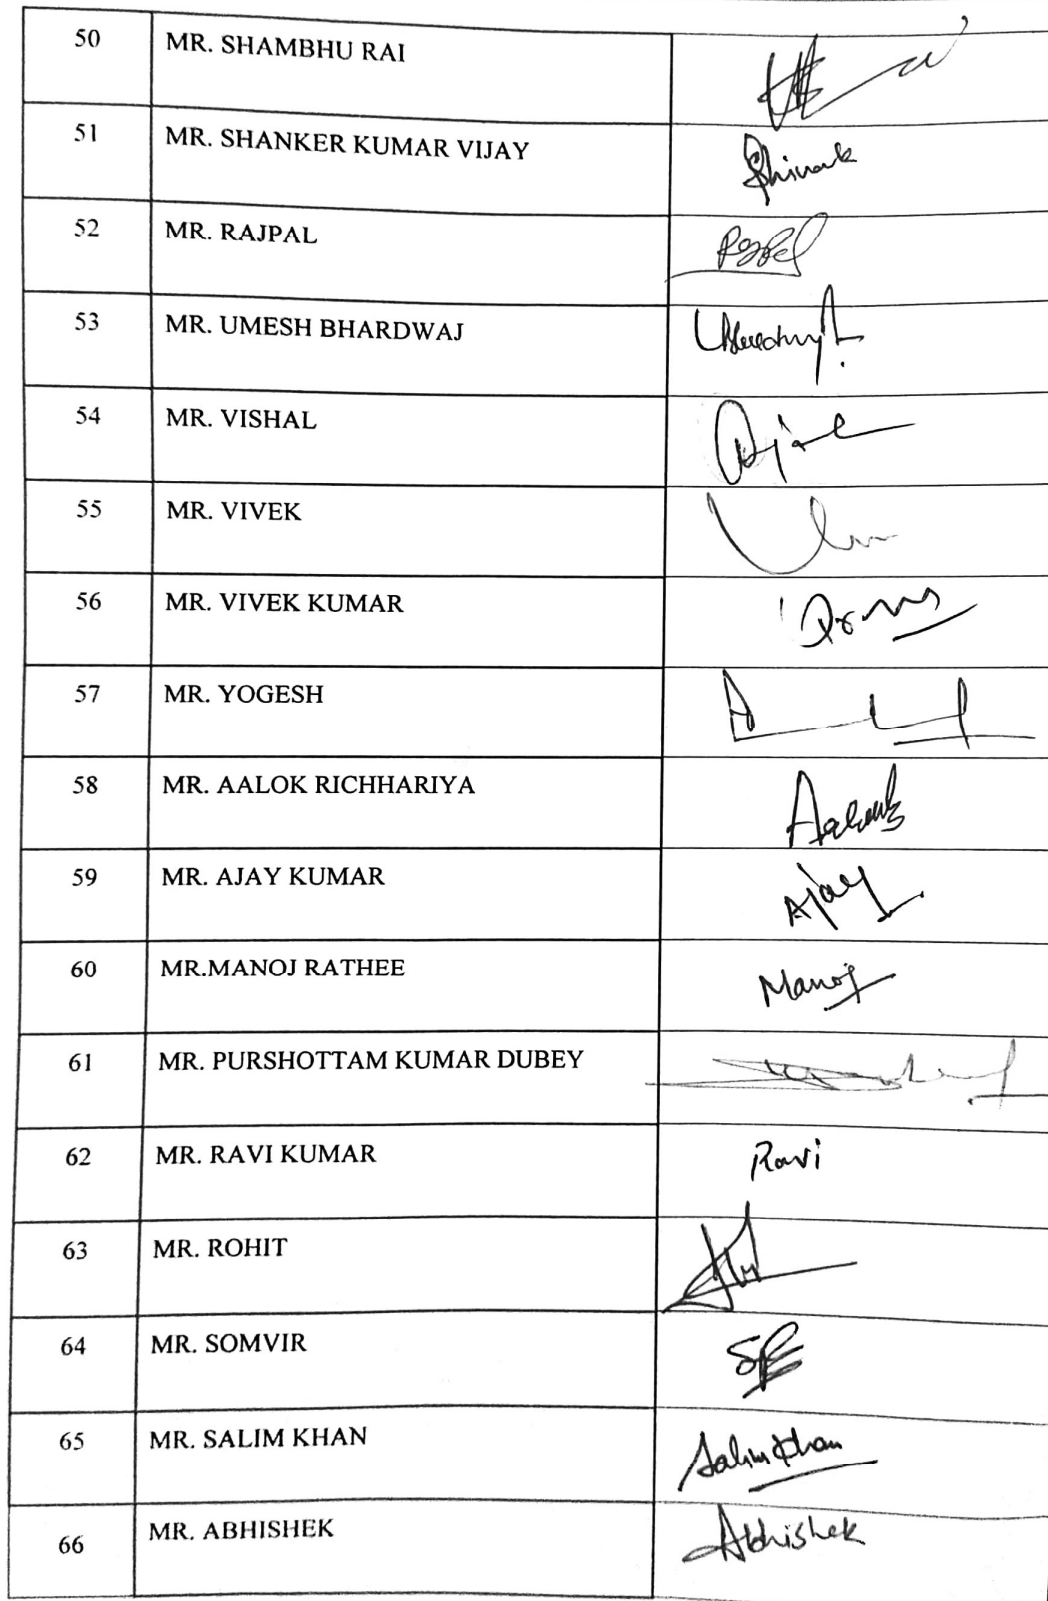 50 MR. SHAMBHU RAI
51 MR. SHANKER KUMAR VIJAY
52 MR. RAJPAL
53 MR. UMESH BHARDWAJ
54 MR. VISHAL
55 MR. VIVEK
56 MR. VIVEK KUMAR
57 MR. YOGESH
58 MR. AALOK RICHHARIYA
59 MR. AJAY KUMAR Ajay
60 MR.MANOJ RATHEE Manoj
61 MR. PURSHOTTAM KUMAR DUBEY
62 MR. RAVI KUMAR Ravi
63 MR. ROHIT
64 MR. SOMVIR
65 MR. SALIM KHAN Salim Khan
66 MR. ABHISHEK Abhishek